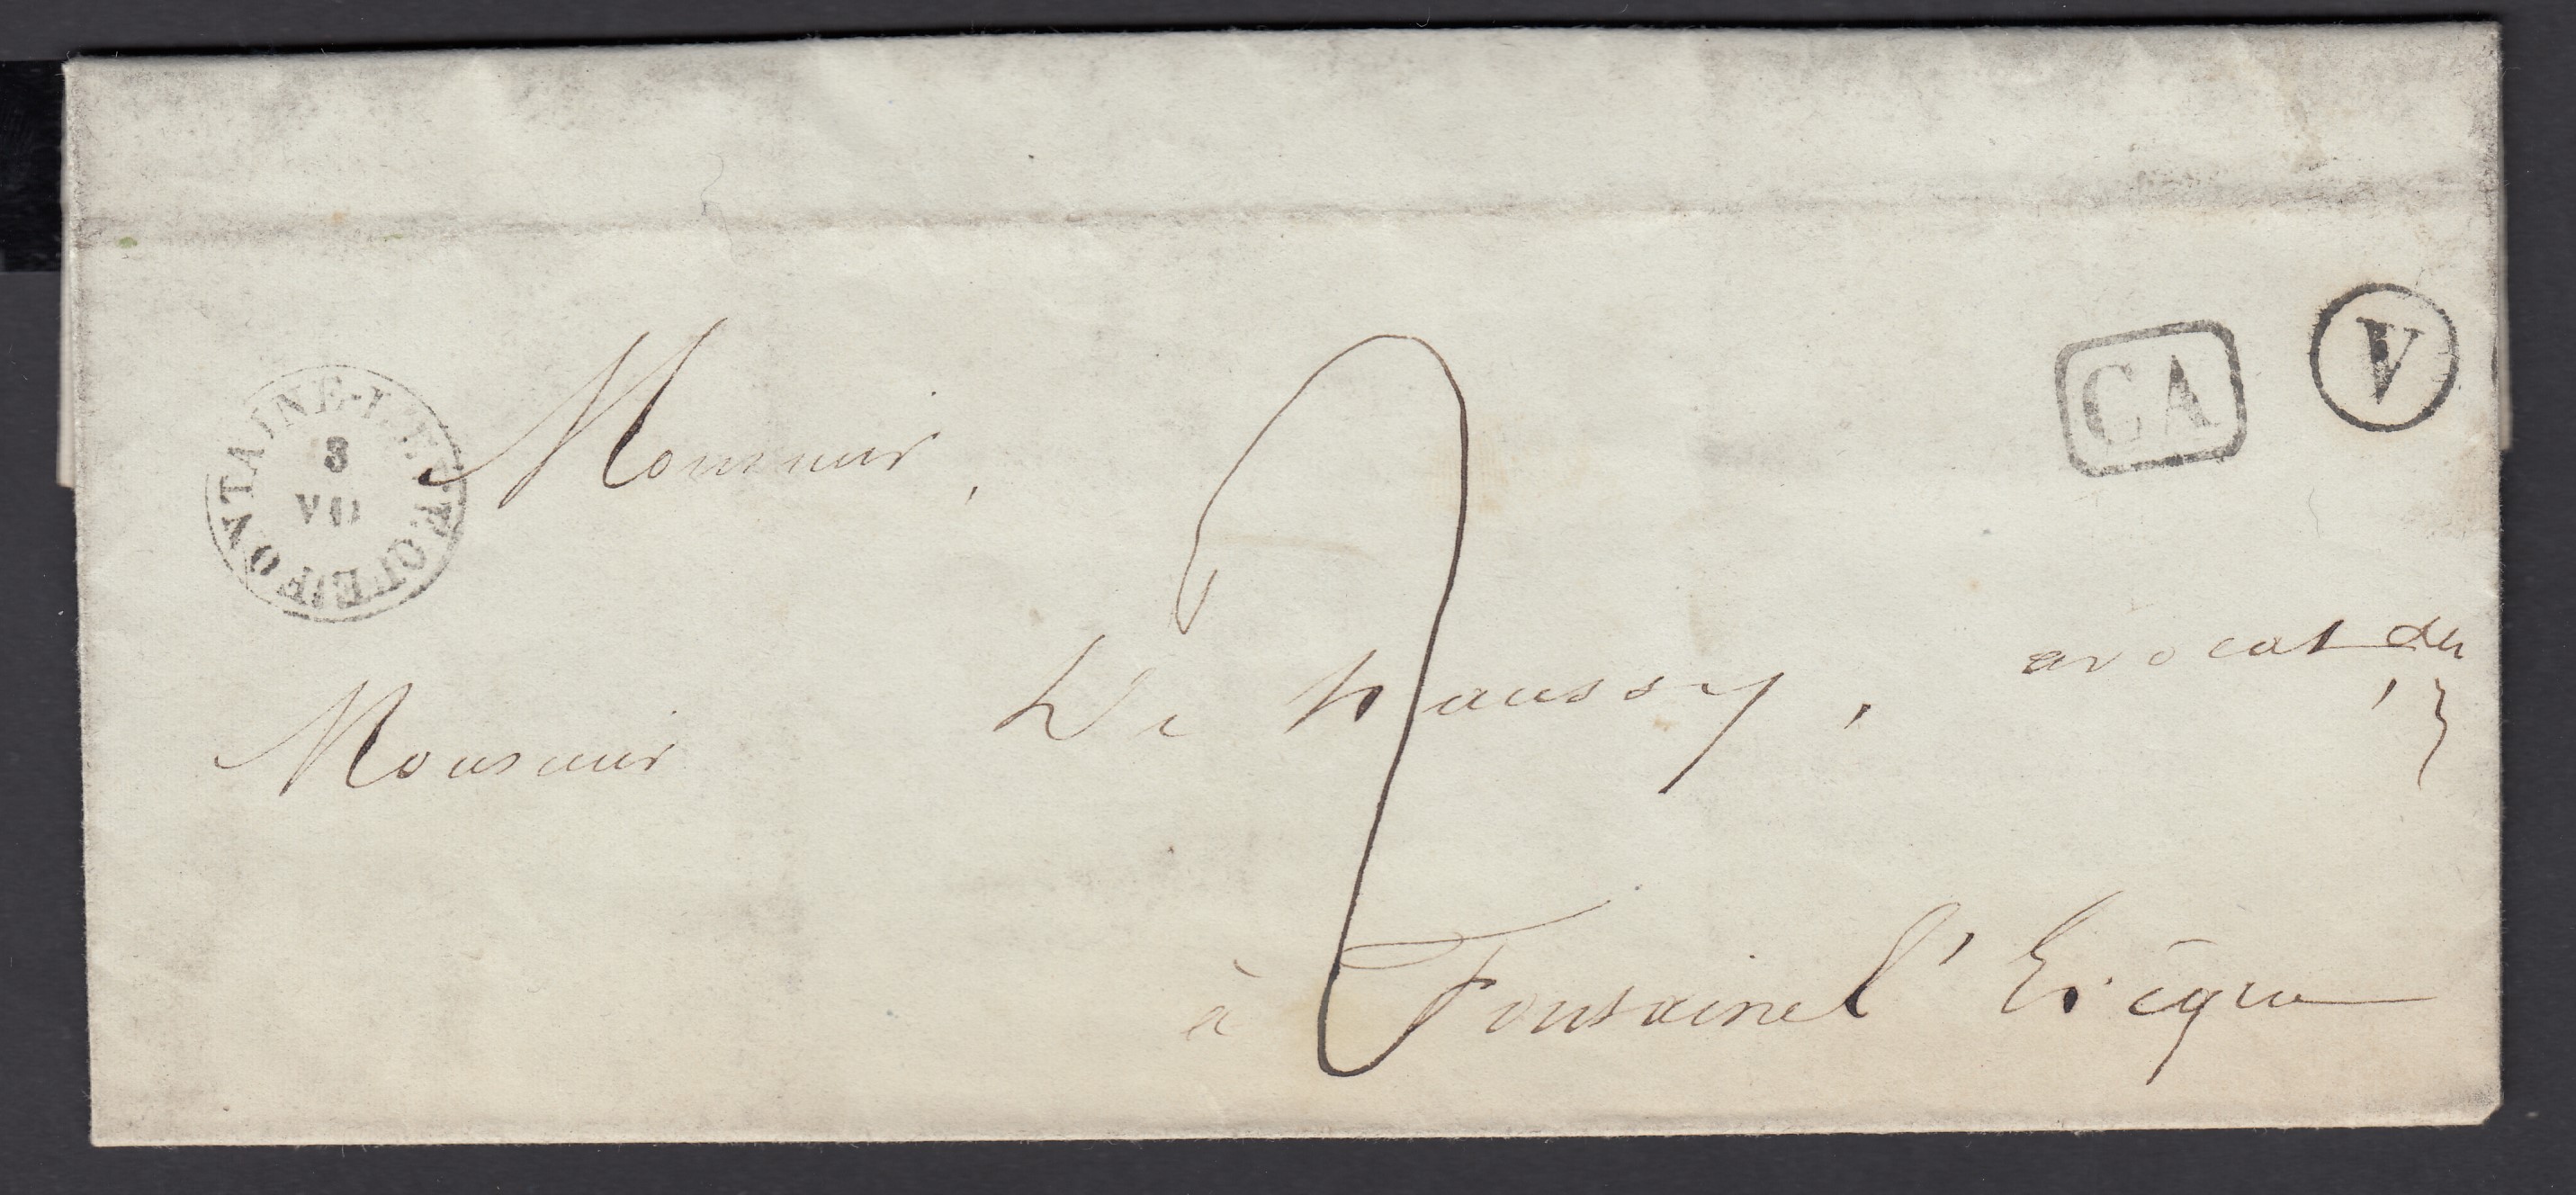 FONTAINE-L'EVEQUE
3
VII
CA
V
Monsieur,
Monsieur De haussy, avocat
2
à Fontaine l'Evêque